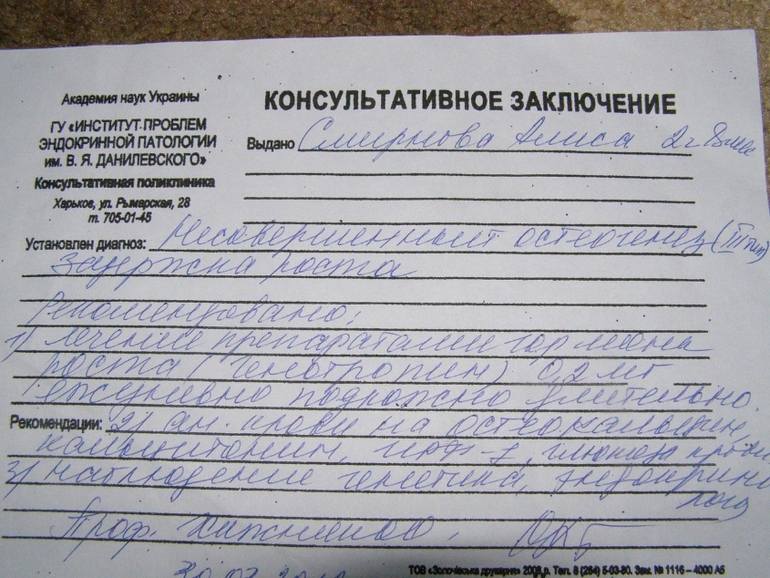 Академия наук Украины
ГУ «ИНСТИТУТ ПРОБЛЕМ
ЭНДОКРИННОЙ ПАТОЛОГИИ
им. В. Я. ДАНИЛЕВСКОГО»
Консультативная поликлиника
Харьков, ул. Рымарская, 28
т. 705-01-45
КОНСУЛЬТАТИВНОЕ ЗАКЛЮЧЕНИЕ
Выдано Смирнова Алиса 2 г 8 мес
Установлен диагноз: Несовершенный остеогенез (III тип)
задержка роста
Рекомендовано:
1) лечение препаратами гормона
роста (Генотропин) 0,2 мг
ежедневно подкожно длительно.
Рекомендации: 2) ан. крови на остеокальцин,
кальцитонин, ИРФ-1, глюкоза крови
3) наблюдение генетика, эндокрино
лога
Проф.
ТОВ «Золочівська друкарня» 2008 р. Тел. 8 (264) 5-03-80. Зам. № 1116 – 4000 А5